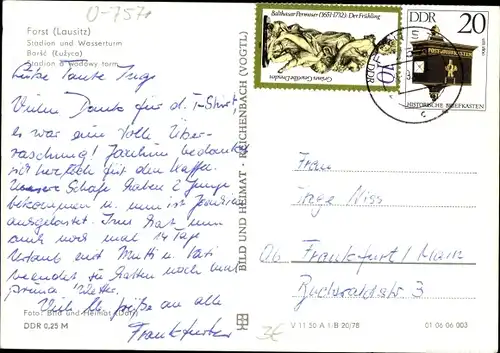 O-7570
Forst (Lausitz)
Stadion und Wasserturm
Baršć (Łužyca)
Stadion a wodowy torm
Liebe Tante Inge
Vielen Dank für d. T-Shirt,
es war eine tolle Über-
raschung! Joachim bedankt
sich herzlich für den Kaffee.
Unsere Schafe haben 2 Junge
bekommen u. nun ist Joachim
ausgelastet. Nun hat man
auch noch mal 14 Tage
Urlaub mit Mutti u. Vati
beendet hatten noch mal
prima Wetter.
Viele liebe Grüße an alle
Frankfurter
Foto: Bild und Heimat (Darr)
DDR 0,25 M
BILD UND HEIMAT · REICHENBACH (VOGTL)
Balthasar Permoser (1651-1732): Der Frühling
Grünes Gewölbe Dresden
DDR
10
DDR
20
HISTORISCHE BRIEFKASTEN
Frau
Inge Niss
Frankfurt/Main
3
3€
V 11 50 A 1/B 20/78
01 06 06 003